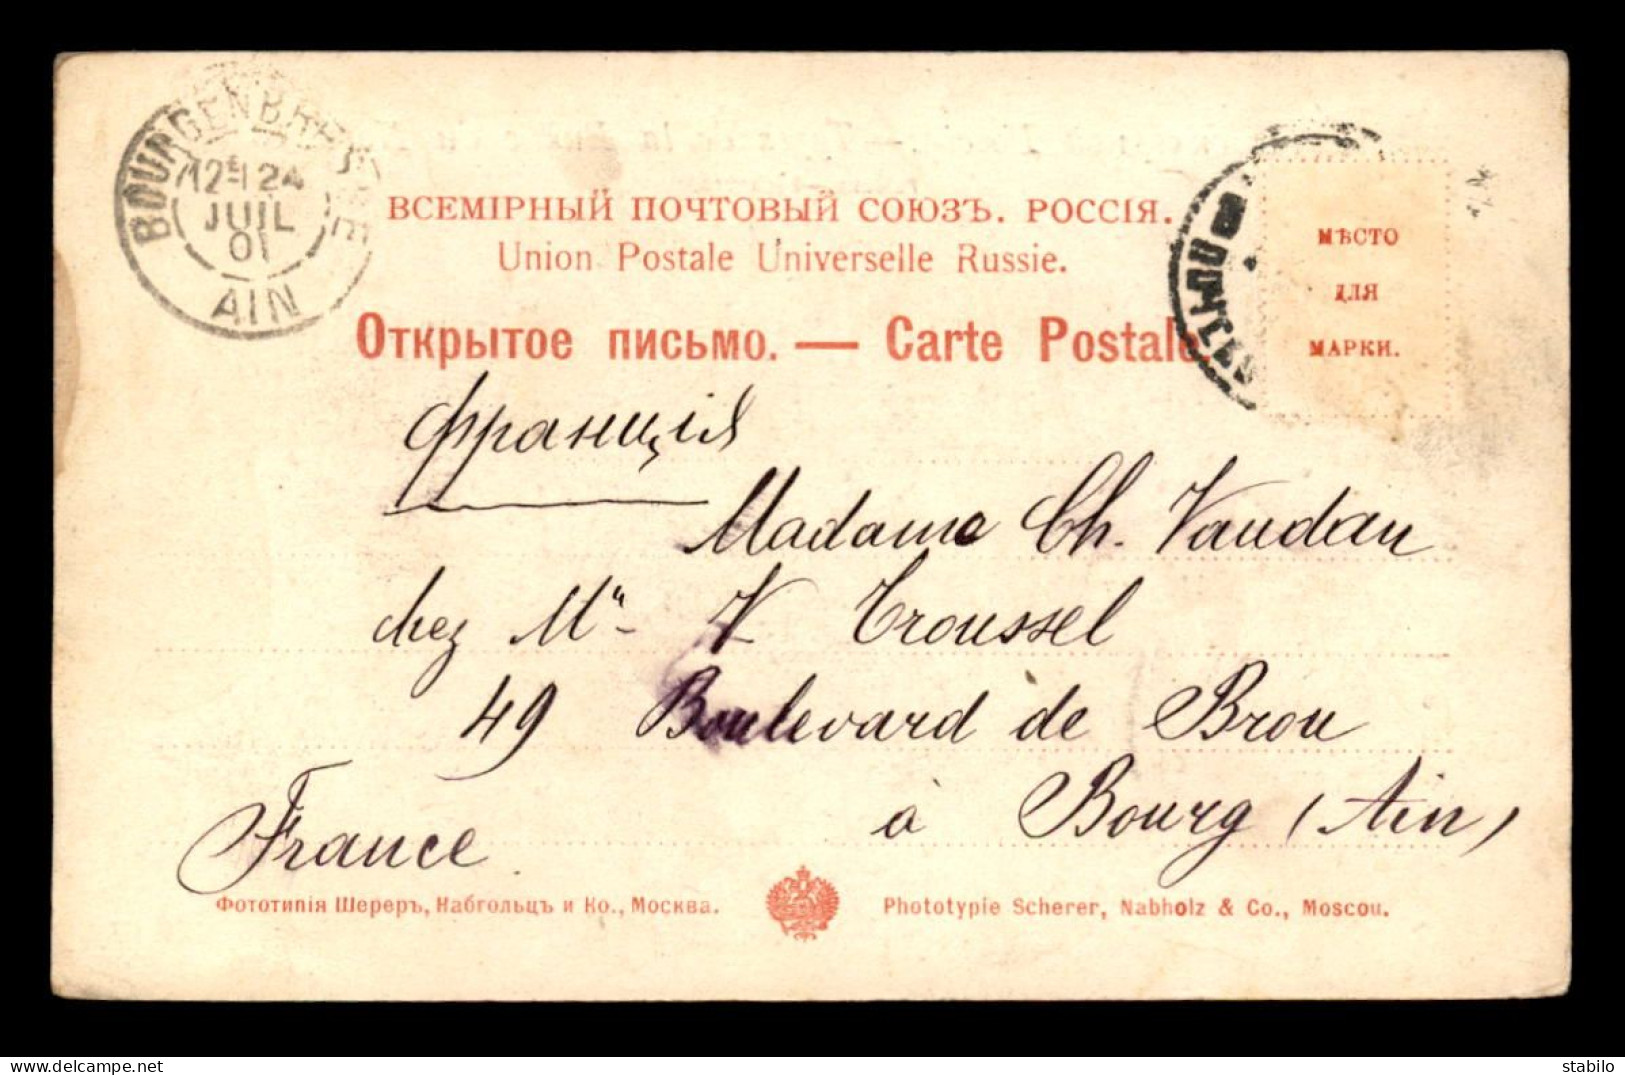 BOURG EN BRESSE
12ᴱ 24
JUIL
01
AIN
ВСЕМІРНЫЙ ПОЧТОВЫЙ СОЮЗЪ. РОССІЯ.
Union Postale Universelle Russie.
Открытое письмо. — Carte Postale.
МѢСТО
ДЛЯ
МАРКИ.
Франція
Madame Ch. Vaudan
chez Mʳ V Troussel
49 Boulevard de Brou
à Bourg (Ain)
France
Фототипія Шереръ, Набгольцъ и Ко., Москва.
Phototypie Scherer, Nabholz & Co., Moscou.
delcampe.net
stablo